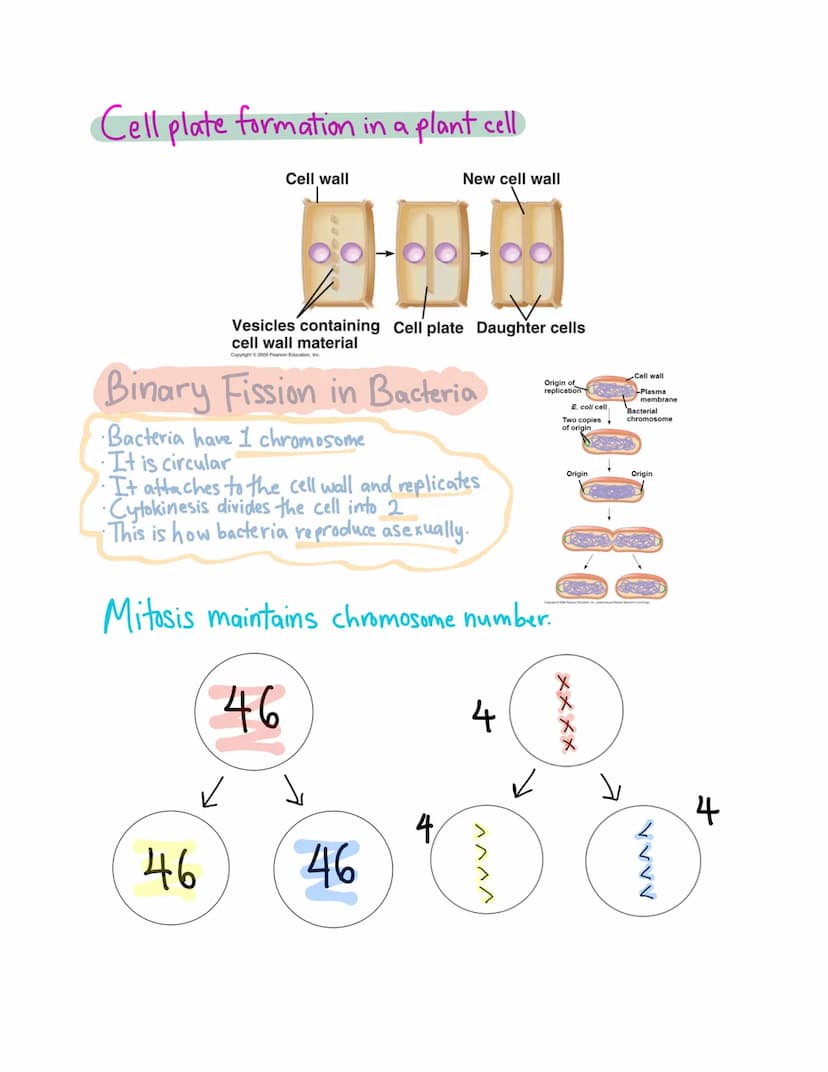 Cell plate formation in a plant cell
Cell wall
New cell wall
Vesicles containing
cell wall material
Cell plate
Daughter cells
Copyright © 2009 Pearson Education, Inc.
Binary Fission in Bacteria
· Bacteria have 1 chromosome
· It is circular
· It attaches to the cell wall and replicates
· Cytokinesis divides the cell into 2
· This is how bacteria reproduce asexually.
Origin of
replication
Cell wall
Plasma
membrane
Bacterial
chromosome
E. coli cell
Two copies
of origin
Origin
Origin
Mitosis maintains chromosome number.
46
46
46
4
4
4